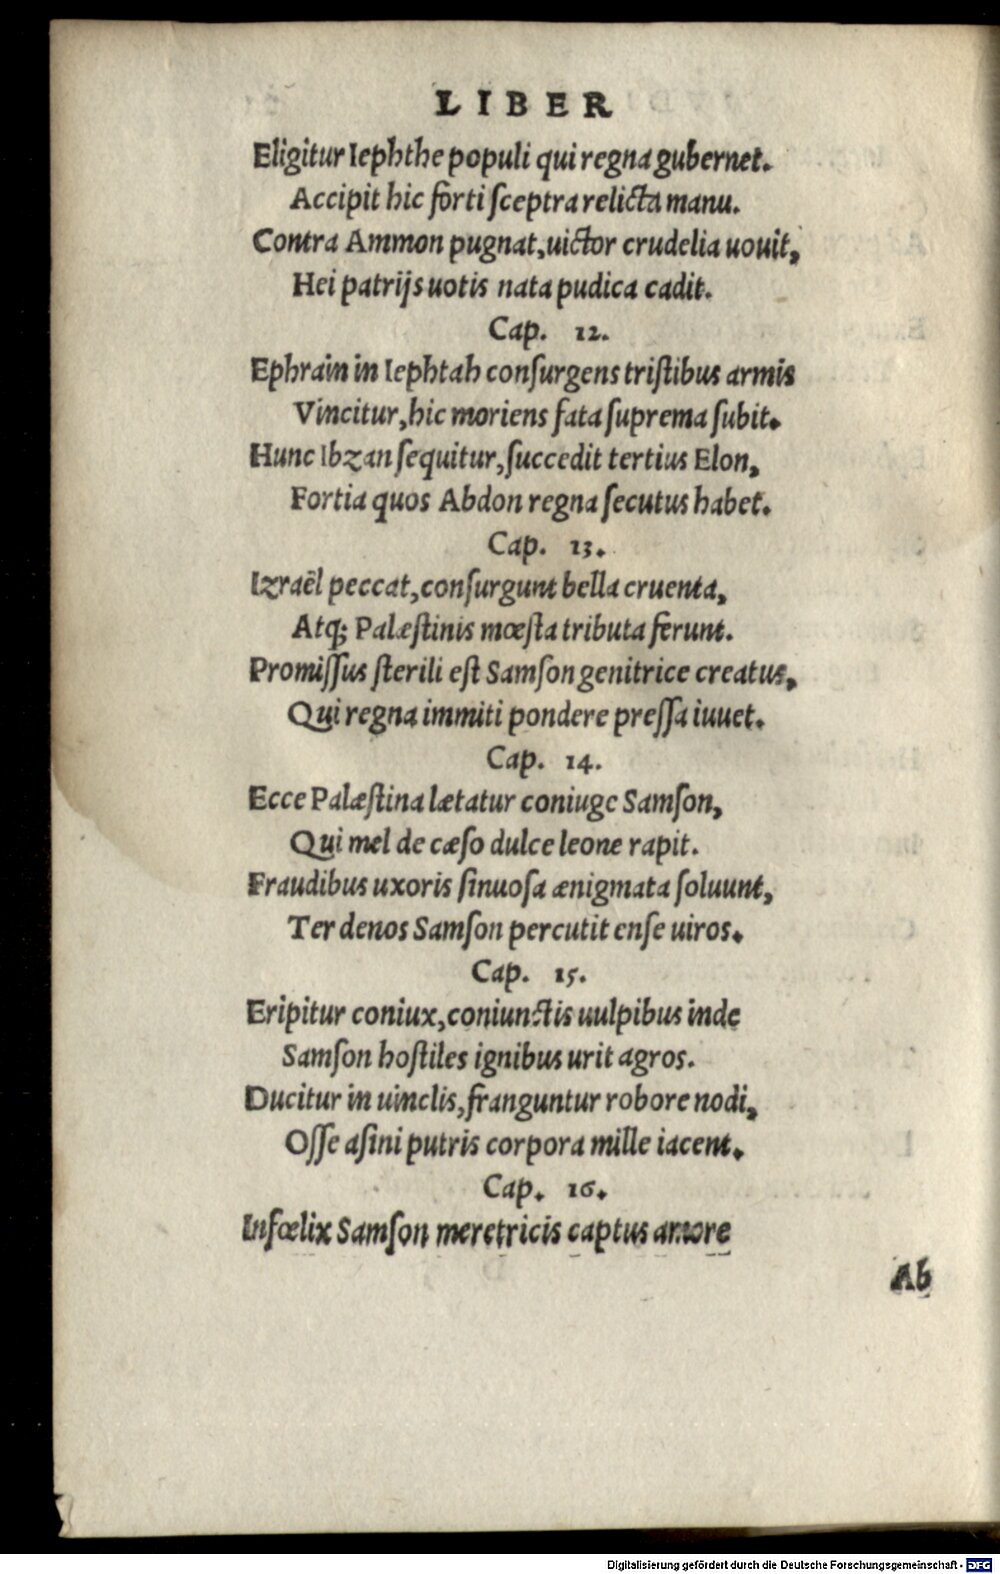 LIBER
Eligitur Iephthe populi qui regna gubernet.
Accipit hic forti ſceptra relicta manu.
Contra Ammon pugnat, uictor crudelia uouit,
Hei patrijs uotis nata pudica cadit.
Cap. 12.
Ephrain in Iephtah conſurgens triſtibus armis
Vincitur, hic moriens fata ſuprema ſubit.
Hunc Ibzan ſequitur, ſuccedit tertius Elon,
Fortia quos Abdon regna ſecutus habet.
Cap. 13.
Izraël peccat, conſurgunt bella cruenta,
Atq; Palæſtinis mœſta tributa ferunt.
Promiſſus ſterili eſt Samſon genitrice creatus,
Qui regna immiti pondere preſſa iuuet.
Cap. 14.
Ecce Palæſtina lætatur coniuge Samſon,
Qui mel de cæſo dulce leone rapit.
Fraudibus uxoris ſinuoſa ænigmata ſoluunt,
Ter denos Samſon percutit enſe uiros.
Cap. 15.
Eripitur coniux, coniunctis uulpibus inde
Samſon hoſtiles ignibus urit agros.
Ducitur in uinclis, franguntur robore nodi,
Oſſe aſini putris corpora mille iacent.
Cap. 16.
Infœlix Samſon meretricis captus amore
Ab
Digitalisierung gefördert durch die Deutsche Forschungsgemeinschaft - DFG